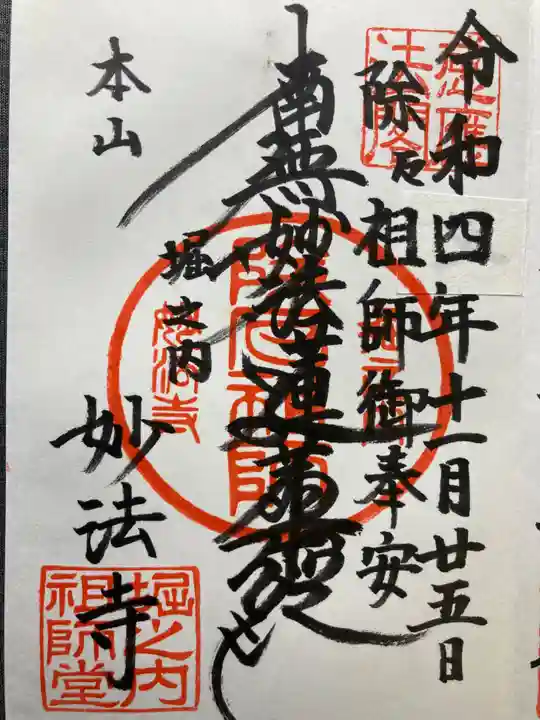 令和四年十一月廿五日
除厄祖師御奉安
南無妙法蓮華経
堀之内
本山
妙法寺
除厄祖師
妙法寺
堀之内
祖師堂